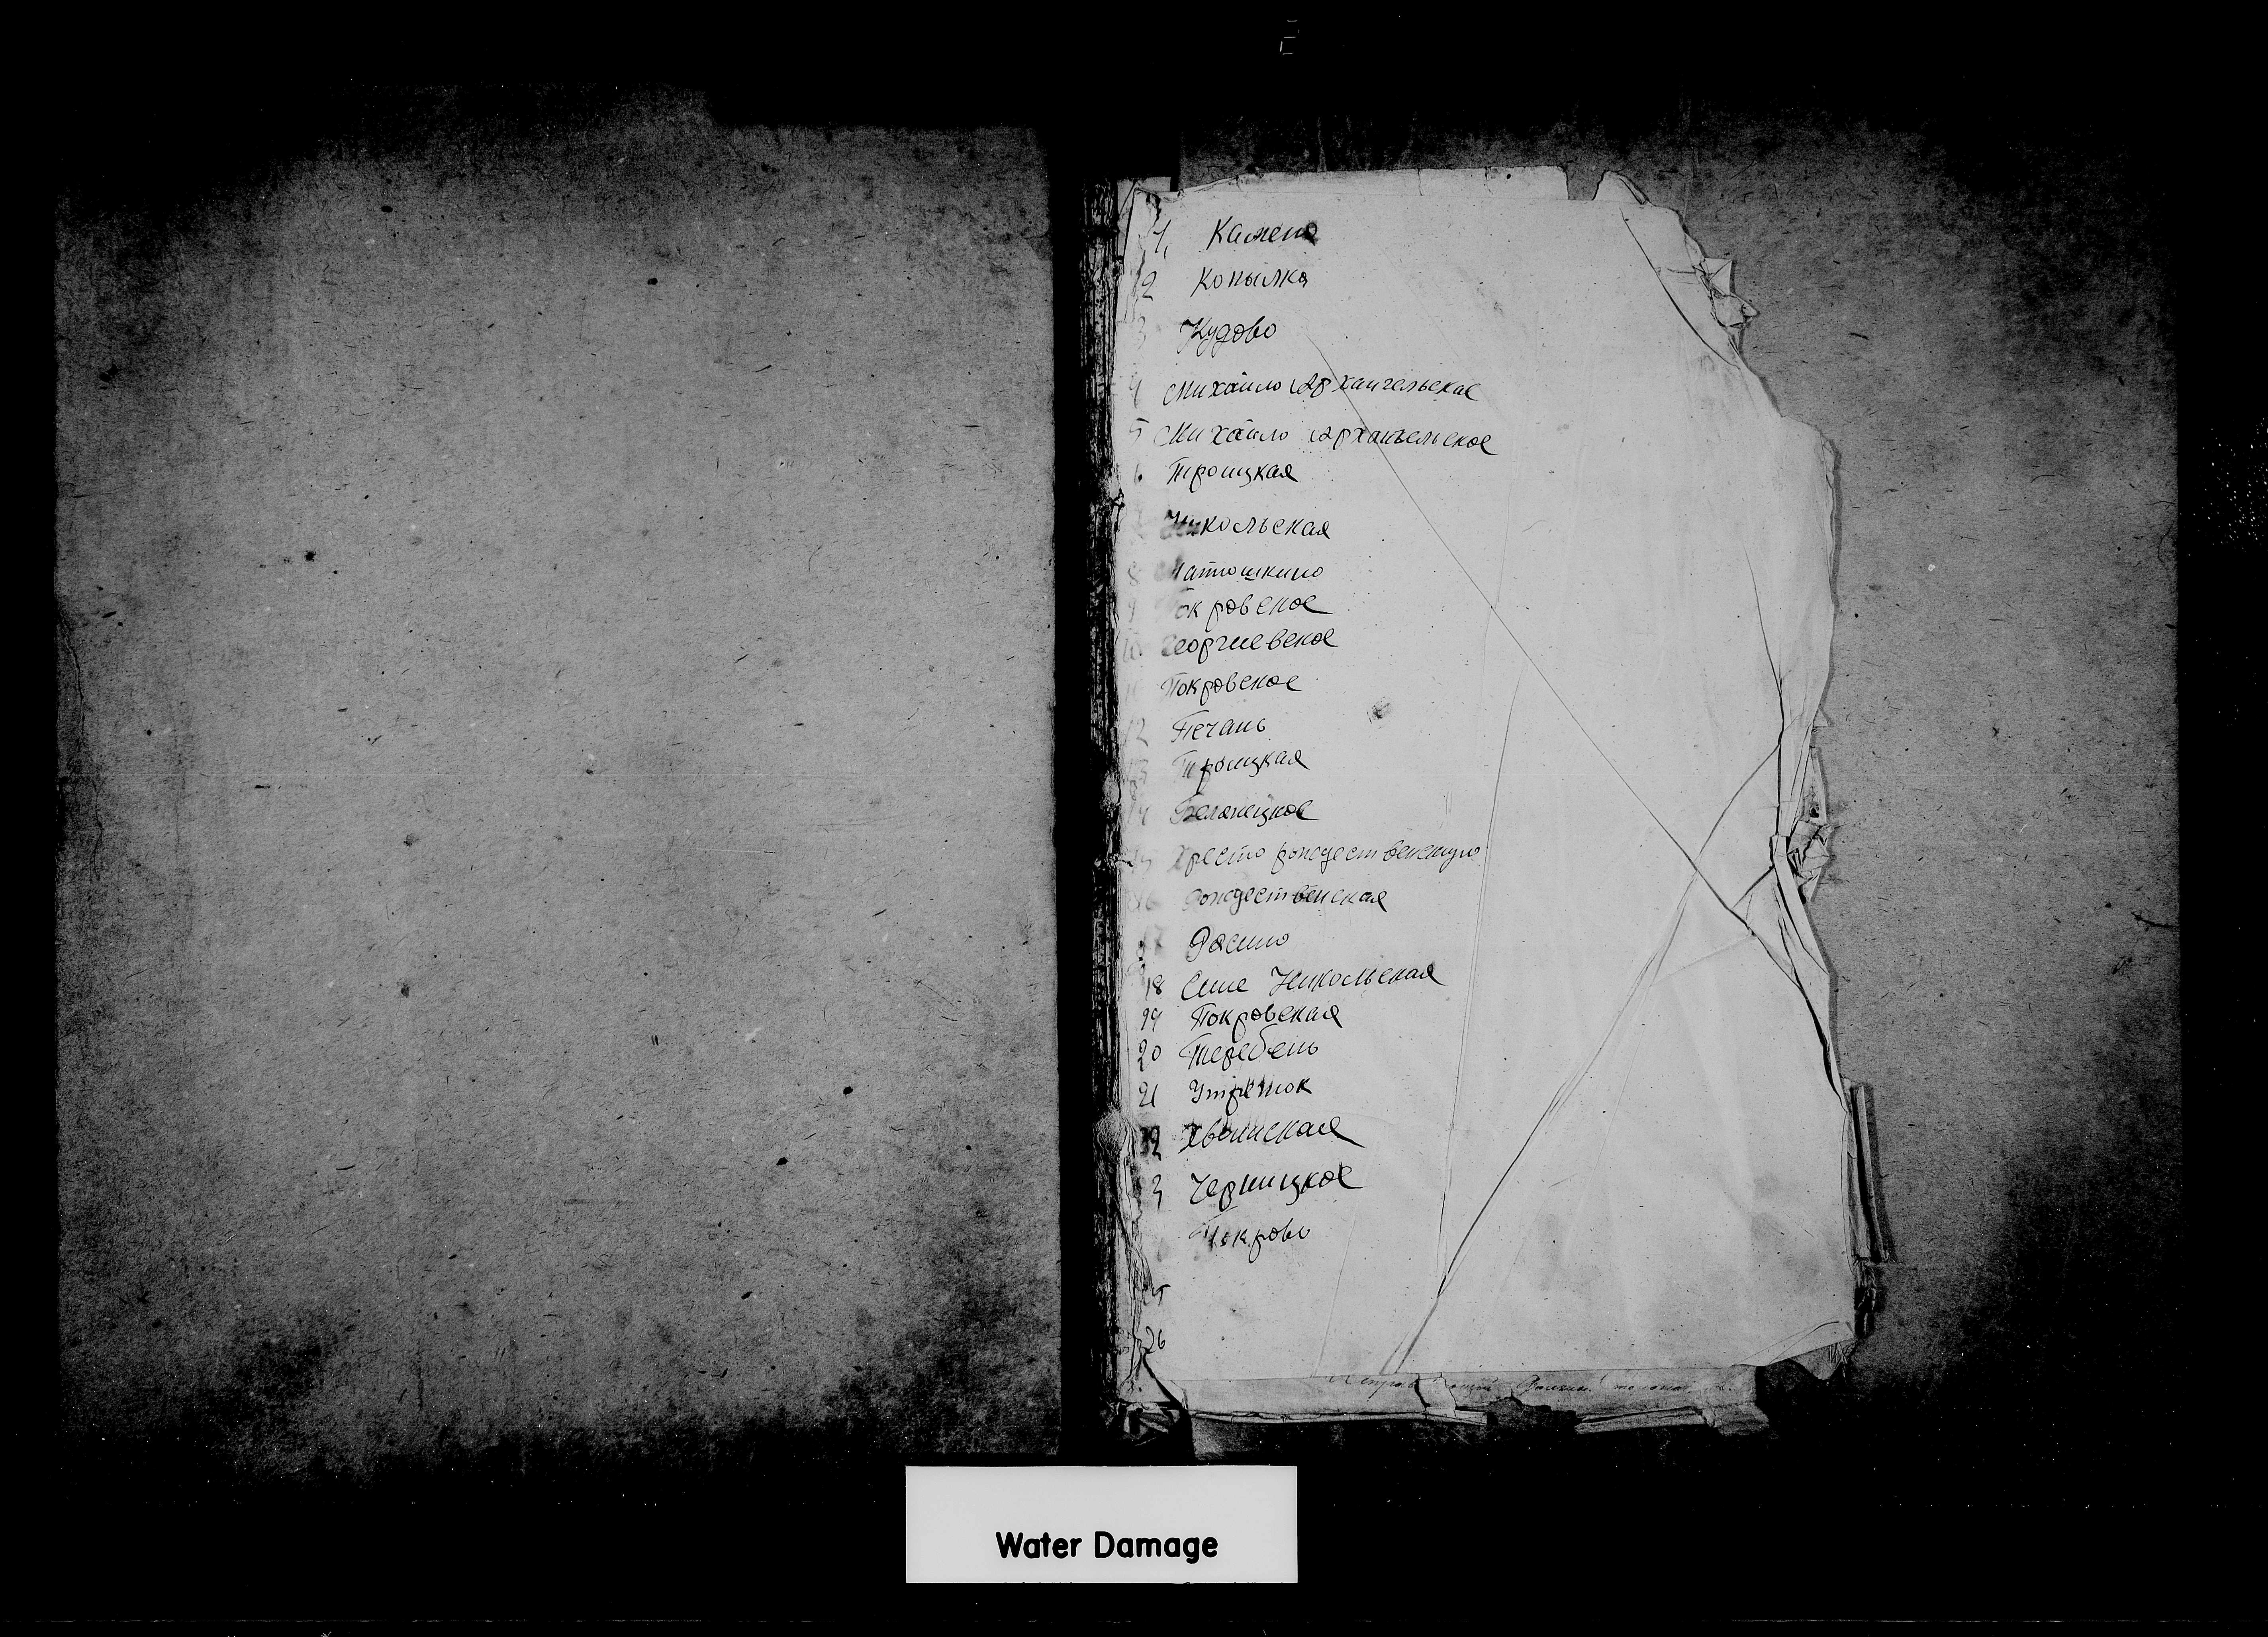 1. Камено
2 Копылка
3 Кудово
4 Михайло Архангельское
5 Михайло Архангельское
6 Троицкая
Никольская
8 Матюшкино
9 Покровское
10 Георгиевское
Покровское
12 Печань
13 Троицкая
14
15 Христо рождественскую
16 Рождественская
17
18 Сине Никольская
19 Покровская
20 Теребень
21 Утреток
22 Хвоинская
3 Черницкое
Покрово
25
26
Water Damage